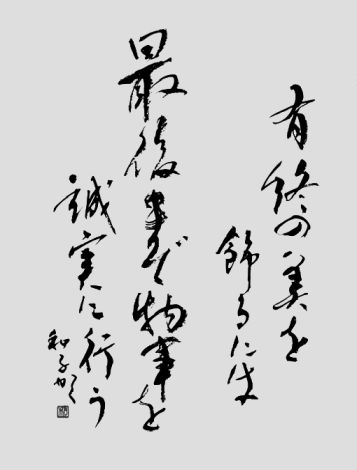 有終の美を
飾るには
最後まで物事を
誠実に行う
和子かく